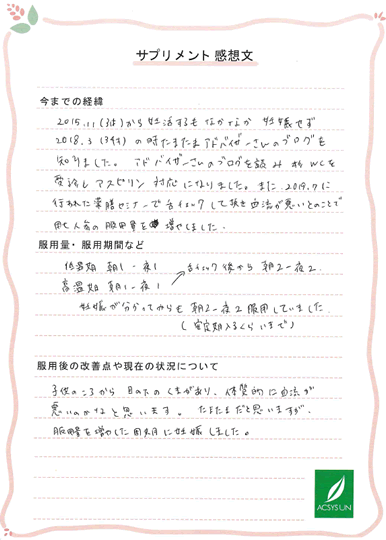 サプリメント 感想文
今までの経緯
2015.11 から妊活するもなかなか 妊娠せず
2018.3 の時たまたまアドバイザーさんのブログを
知りました。 アドバイザーさんのブログを読み
受診し アスピリン 対応になりました。また 2019.7に
行われた薬膳セミナーで舌チェックして頂き血流が悪いとのことで
田七人参の服用量を増やしました。
服用量・服用期間など
低温期 朝1-夜1 舌チェック後から 朝2-夜2
高温期 朝1-夜1
妊娠が分かってからも 朝2-夜2 服用していました
(安定期入るくらいまで)
服用後の改善点や現在の状況について
子供のころから 目の下のくまがあり、体質的に血流が
悪いのかなと思います。 たまたまだと思いますが、
服用量を増やした周期に妊娠しました。
ACSYSUN